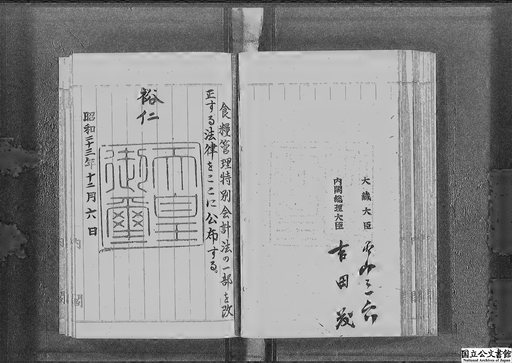 大蔵大臣 泉山三六
内閣総理大臣 吉田茂
食糧管理特別会計法の一部を改
正する法律をここに公布する。
裕仁
天皇
御璽
昭和二十三年十二月六日
内閣
国立公文書館
National Archives of Japan